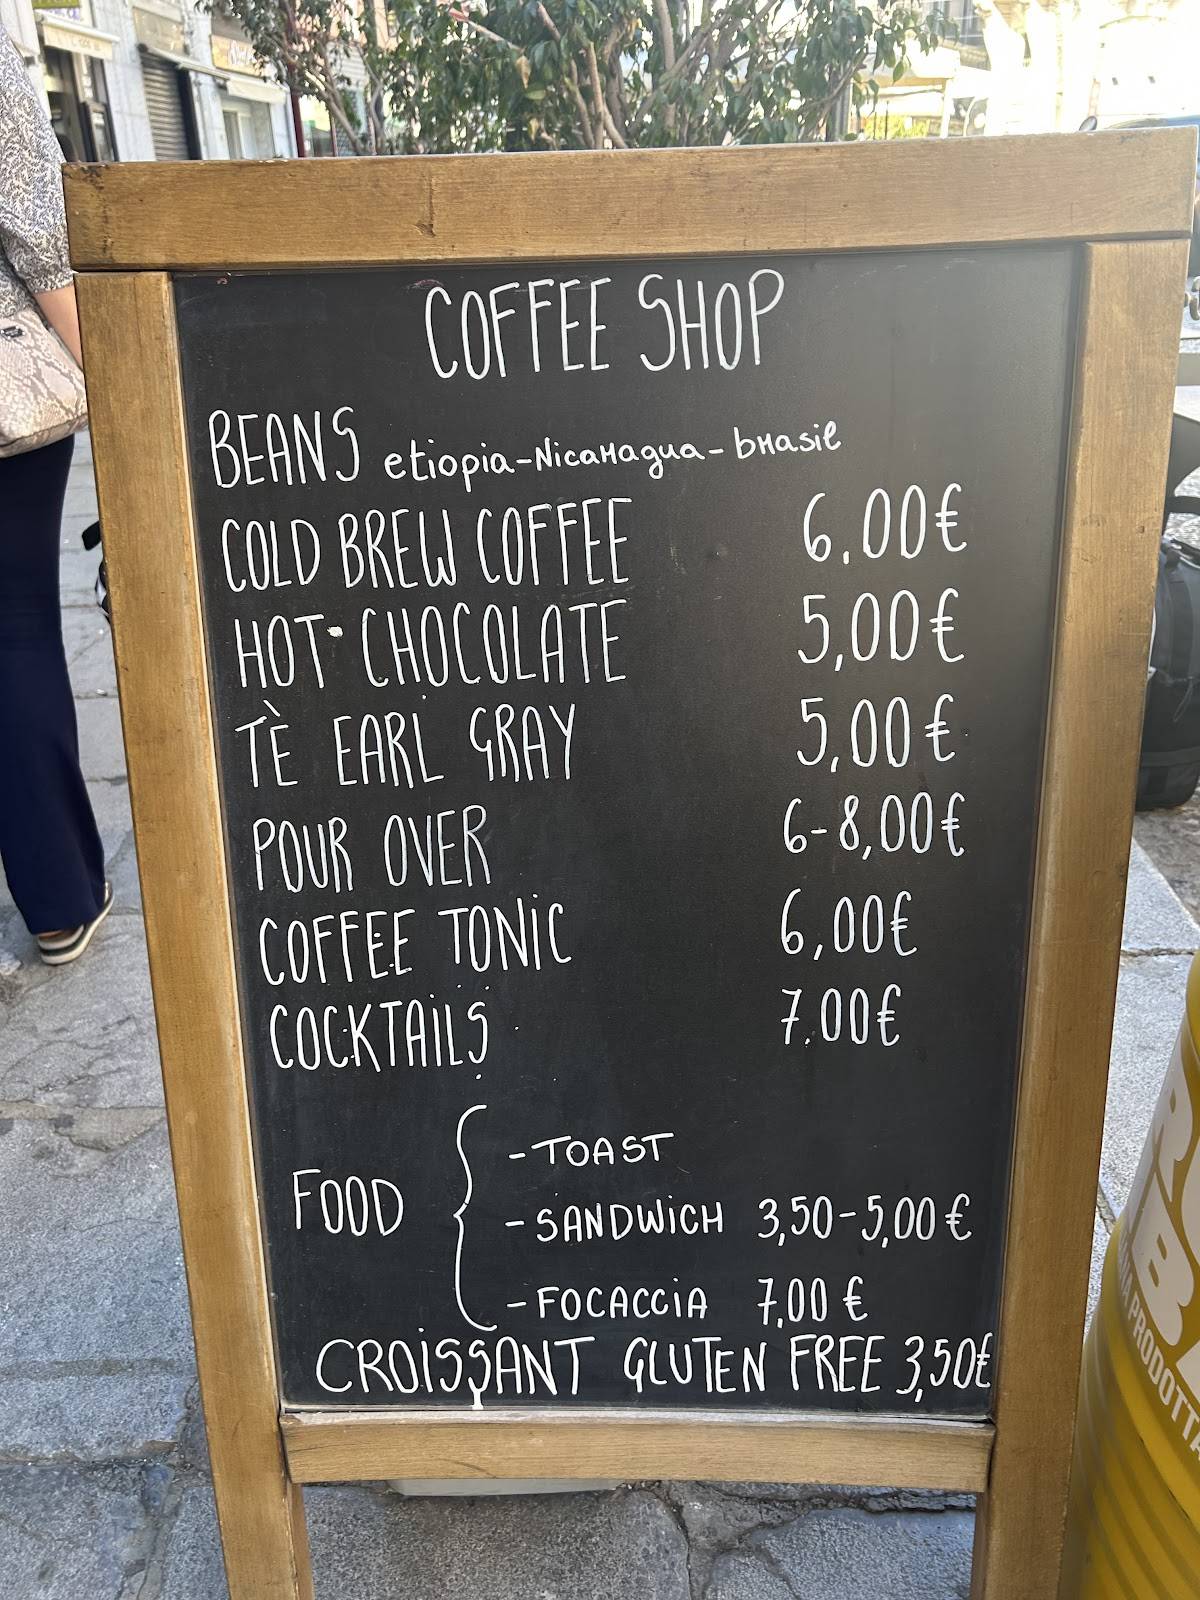 COFFEE SHOP
BEANS etiopia-Nicaragua-brasil
COLD BREW COFFEE 6,00€
HOT CHOCOLATE 5,00€
TÈ EARL GRAY 5,00€
POUR OVER 6-8,00€
COFFEE TONIC 6,00€
COCKTAILS 7,00€
FOOD
- TOAST
- SANDWICH 3,50-5,00€
- FOCACCIA 7,00€
CROISSANT GLUTEN FREE 3,50€